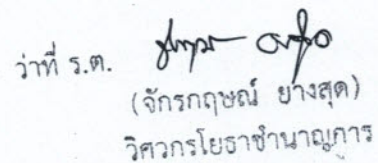 ว่าที่ ร.ต.
(จักรกฤษณ์ ยางสุด)
วิศวกรโยธาชำนาญการ